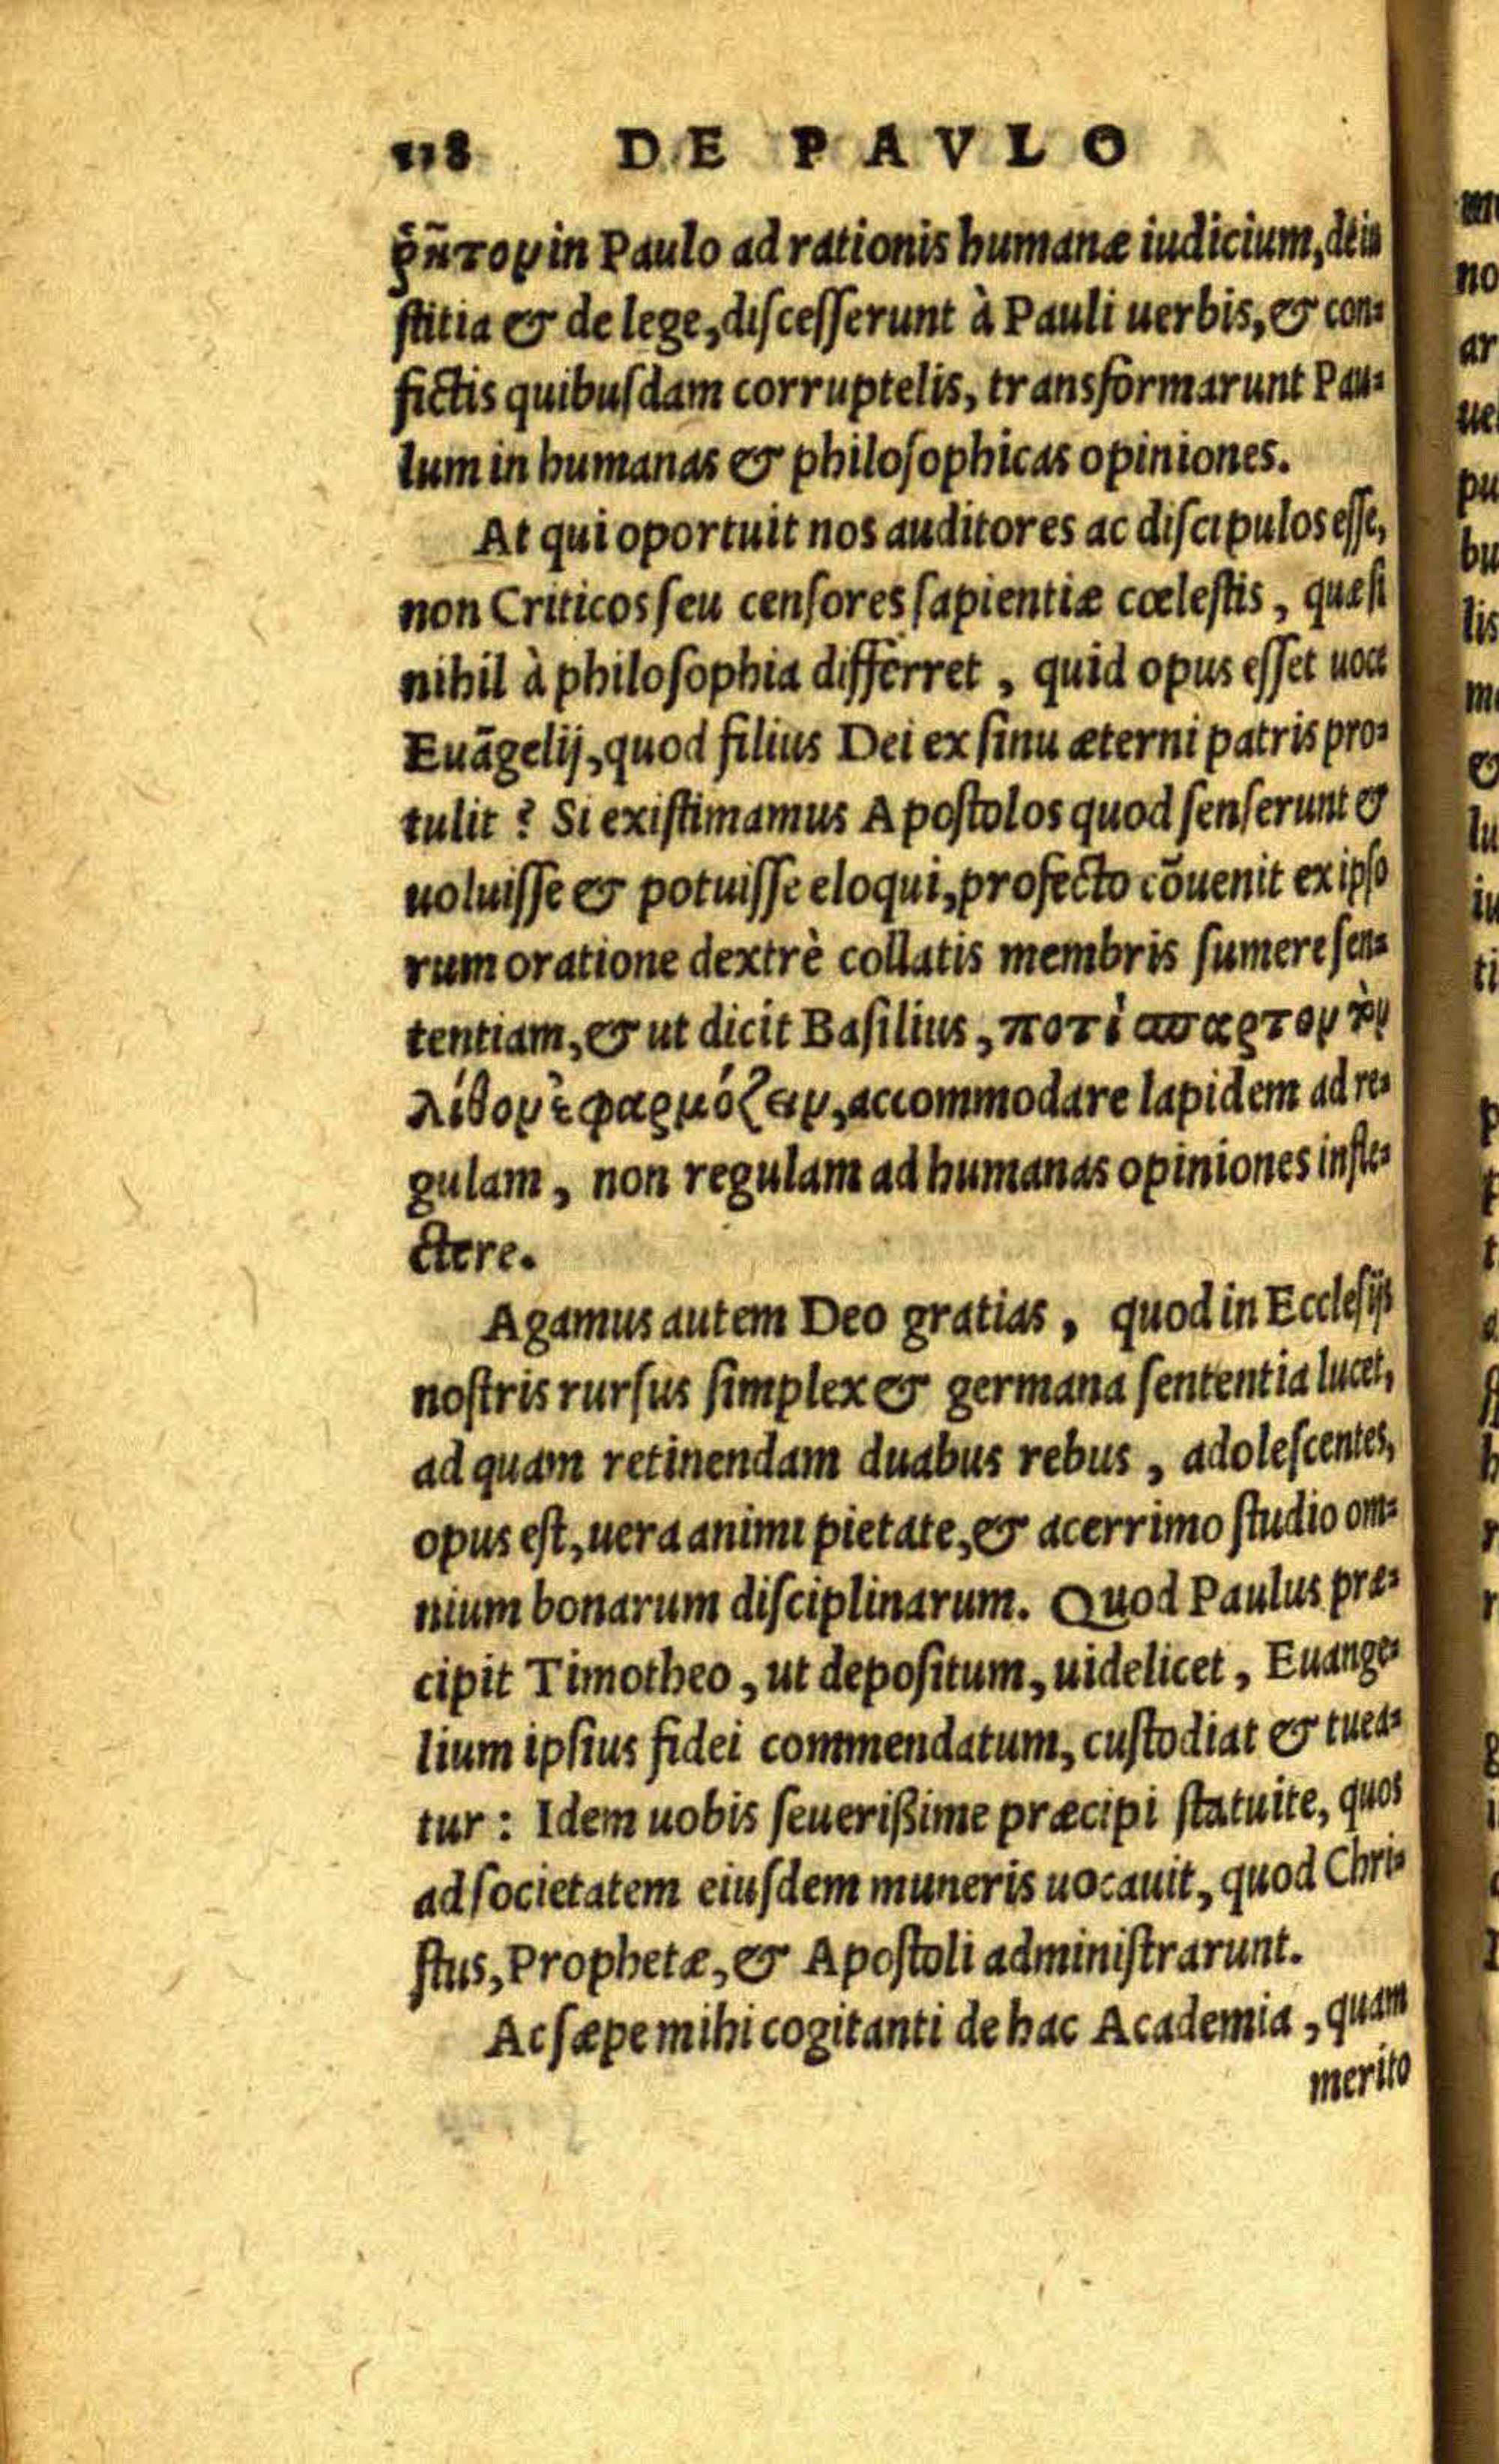 118 DE PAVLO
ῥητον in Paulo ad rationis humanæ iudicium, de iu
ſtitia & de lege, diſceſſerunt à Pauli uerbis, & con-
fictis quibuſdam corruptelis, transformarunt Pau-
lum in humanas & philoſophicas opiniones.
At qui oportuit nos auditores ac diſcipulos eſſe,
non Criticos ſeu cenſores ſapientiæ cœleſtis, quæ ſi
nihil à philoſophia differret, quid opus eſſet uoce
Euãgelij, quod filius Dei ex ſinu æterni patris pro-
tulit? Si exiſtimamus Apoſtolos quod ſenſerunt &
uoluiſſe & potuiſſe eloqui, profecto cõuenit ex ipſo
rum oratione dextrè collatis membris ſumere ſen-
tentiam, & ut dicit Baſilius, ποτὶ σπαρτον τὸν
λίθον ἐφαρμόζειν, accommodare lapidem ad re-
gulam, non regulam ad humanas opiniones infle-
ctere.
Agamus autem Deo gratias, quod in Eccleſijs
noſtris rurſus ſimplex & germana ſententia lucet,
ad quam retinendam duabus rebus, adoleſcentes,
opus eſt, uera animi pietate, & acerrimo ſtudio om-
nium bonarum diſciplinarum. Quod Paulus præ-
cipit Timotheo, ut depoſitum, uidelicet, Euange-
lium ipſius fidei commendatum, cuſtodiat & tuea-
tur: Idem uobis ſeuerißime præcipi ſtatuite, quos
ad ſocietatem eiuſdem muneris uocauit, quod Chri-
ſtus, Prophetæ, & Apoſtoli adminiſtrarunt.
Ac ſæpe mihi cogitanti de hac Academia, quam
merito